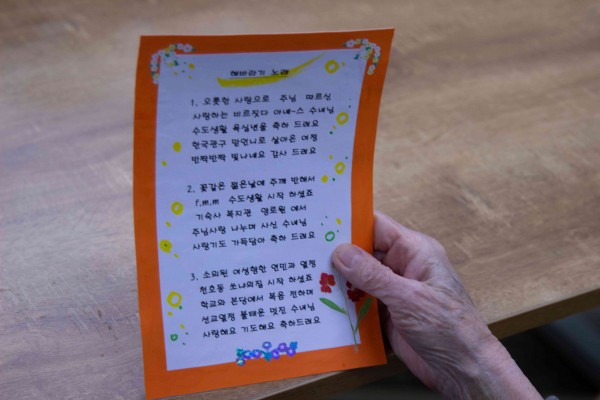 해바라기 노래
1. 오롯한 사랑으로 주님 따르신
사랑하는 비르짓다 아네-스 수녀님
수도생활 육십년을 축하 드려요
한국관구 맏언니로 살아온 여정
반짝반짝 빛나네요 감사 드려요
2. 꽃같은 젊은날에 주께 반해서
f.m.m 수도생활 시작 하셨죠
기숙사 복지관 양로원 에서
주님사랑 나누며 사신 수녀님
사랑기도 가득담아 축하 드려요
3. 소외된 여성향한 연민과 열정
천호동 쏘냐의집 시작 하셨죠
학교와 본당에서 복음 전하며
선교열정 불태운 멋진 수녀님
사랑해요 기도해요 축하드려요